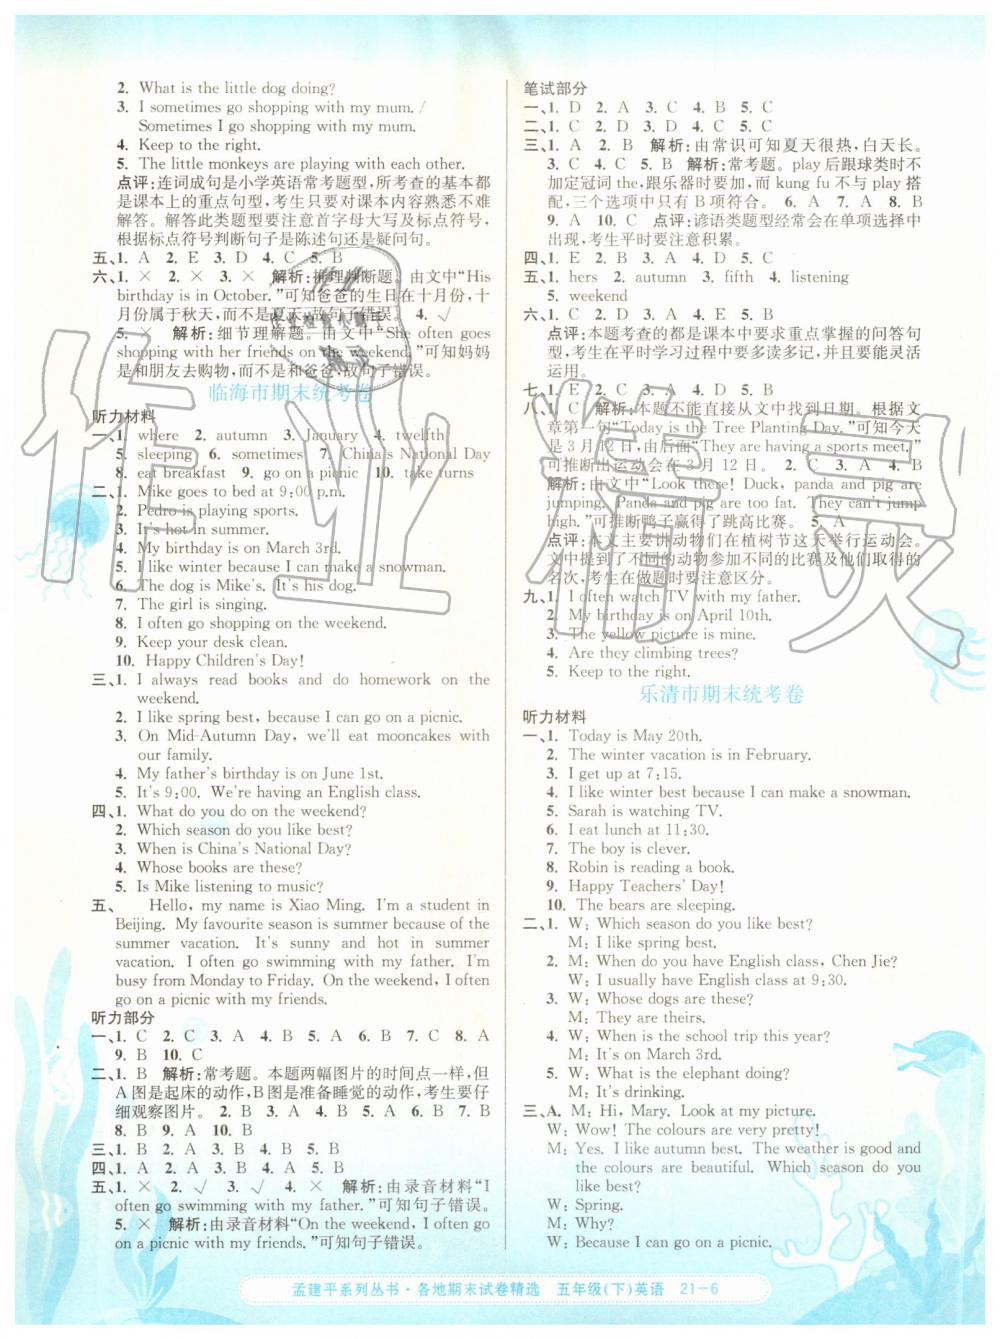 2. What is the little dog doing?
3. I sometimes go shopping with my mum. /
Sometimes I go shopping with my mum.
4. Keep to the right.
5. The little monkeys are playing with each other.
点评:连词成句是小学英语常考题型,所考查的基本都
是课本上的重点句型,考生只要对课本内容熟悉不难
解答。解答此类题型要注意首字母大写及标点符号,
根据标点符号判断句子是陈述句还是疑问句。
五、1. A 2. E 3. D 4. C 5. B
六、1. × 2. × 3. × 解析:推理判断题。由文中“His
birthday is in October. ”可知爸爸的生日在十月份,十
月份属于秋天,而不是夏天,故句子错误。 4. √
5. × 解析:细节理解题。由文中“She often goes
shopping with her friends on the weekend. ”可知妈妈
是和朋友去购物,而不是和爸爸,故句子错误。
临海市期末统考卷
听力材料
一、1. where 2. autumn 3. January 4. twelfth
5. sleeping 6. sometimes 7. China's National Day
8. eat breakfast 9. go on a picnic 10. take turns
二、1. Mike goes to bed at 9:00 p.m.
2. Pedro is playing sports.
3. It's hot in summer.
4. My birthday is on March 3rd.
5. I like winter because I can make a snowman.
6. The dog is Mike's. It's his dog.
7. The girl is singing.
8. I often go shopping on the weekend.
9. Keep your desk clean.
10. Happy Children's Day!
三、1. I always read books and do homework on the
weekend.
2. I like spring best, because I can go on a picnic.
3. On Mid-Autumn Day, we'll eat mooncakes with
our family.
4. My father's birthday is on June 1st.
5. It's 9:00. We're having an English class.
四、1. What do you do on the weekend?
2. Which season do you like best?
3. When is China's National Day?
4. Whose books are these?
5. Is Mike listening to music?
五、 Hello, my name is Xiao Ming. I'm a student in
Beijing. My favourite season is summer because of the
summer vacation. It's sunny and hot in summer
vacation. I often go swimming with my father. I'm
busy from Monday to Friday. On the weekend, I often
go on a picnic with my friends.
听力部分
一、1. C 2. C 3. A 4. B 5. A 6. B 7. C 8. A
9. B 10. C
二、1. B 解析:常考题。本题两幅图片的时间点一样,但
A图是起床的动作,B图是准备睡觉的动作,考生要仔
细观察图片。 2. B 3. A 4. B 5. A 6. B 7. B
8. B 9. A 10. B
三、1. B 2. A 3. A 4. B 5. B
四、1. A 2. B 3. A 4. A 5. B
五、1. × 2. √ 3. √ 4. × 解析:由录音材料“I
often go swimming with my father. ”可知句子错误。
5. × 解析:由录音材料“On the weekend, I often go
on a picnic with my friends. ”可知句子错误。
笔试部分
一、1. D 2. A 3. C 4. B 5. C
二、1. C 2. D 3. D 4. C 5. C
三、1. A 2. B 解析:由常识可知夏天很热,白天长。
3. C 4. C 5. B 解析:常考题。play后跟球类时不
加定冠词 the,跟乐器时要加,而 kung fu 不与 play 搭
配,三个选项中只有 B 项符合。 6. A 7. A 8. B
9. A 10. C 点评:谚语类题型经常会在单项选择中
出现,考生平时要注意积累。
四、1. E 2. B 3. A 4. C 5. D
五、1. hers 2. autumn 3. fifth 4. listening
5. weekend
六、1. C 2. D 3. A 4. E 5. B
点评:本题考查的都是课本中要求重点掌握的问答句
型,考生在平时学习过程中要多读多记,并且要能灵活
运用。
七、1. E 2. C 3. A 4. D 5. B
八、1. C 解析:本题不能直接从文中找到日期。根据文
章第一句“Today is the Tree Planting Day. ”可知今天
是 3 月 12 日,由后面“They are having a sports meet. ”
可推断出运动会在 3 月 12 日。 2. C 3. A 4. B
解析:由文中“Look there! Duck, panda and pig are
jumping. Panda and pig are too fat. They can't jump
high. ”可推断鸭子赢得了跳高比赛。 5. A
点评:本文主要讲动物们在植树节这天举行运动会。
文中提到了不同的动物参加不同的比赛及他们取得的
名次,考生在做题时要注意区分。
九、1. I often watch TV with my father.
2. My birthday is on April 10th.
3. The yellow picture is mine.
4. Are they climbing trees?
5. Keep to the right.
乐清市期末统考卷
听力材料
一、1. Today is May 20th.
2. The winter vacation is in February.
3. I get up at 7:15.
4. I like winter best because I can make a snowman.
5. Sarah is watching TV.
6. I eat lunch at 11:30.
7. The boy is clever.
8. Robin is reading a book.
9. Happy Teachers' Day!
10. The bears are sleeping.
二、1. W: Which season do you like best?
M: I like spring best.
2. M: When do you have English class, Chen Jie?
W: I usually have English class at 9:30.
3. W: Whose dogs are these?
M: They are theirs.
4. W: When is the school trip this year?
M: It's on March 3rd.
5. W: What is the elephant doing?
M: It's drinking.
三、A. M: Hi, Mary. Look at my picture.
W: Wow! The colours are very pretty!
M: Yes. I like autumn best. The weather is good and
the colours are beautiful. Which season do you
like best?
W: Spring.
M: Why?
W: Because I can go on a picnic.
孟建平系列丛书·各地期末试卷精选 五年级(下)英语 21-6
作业精灵